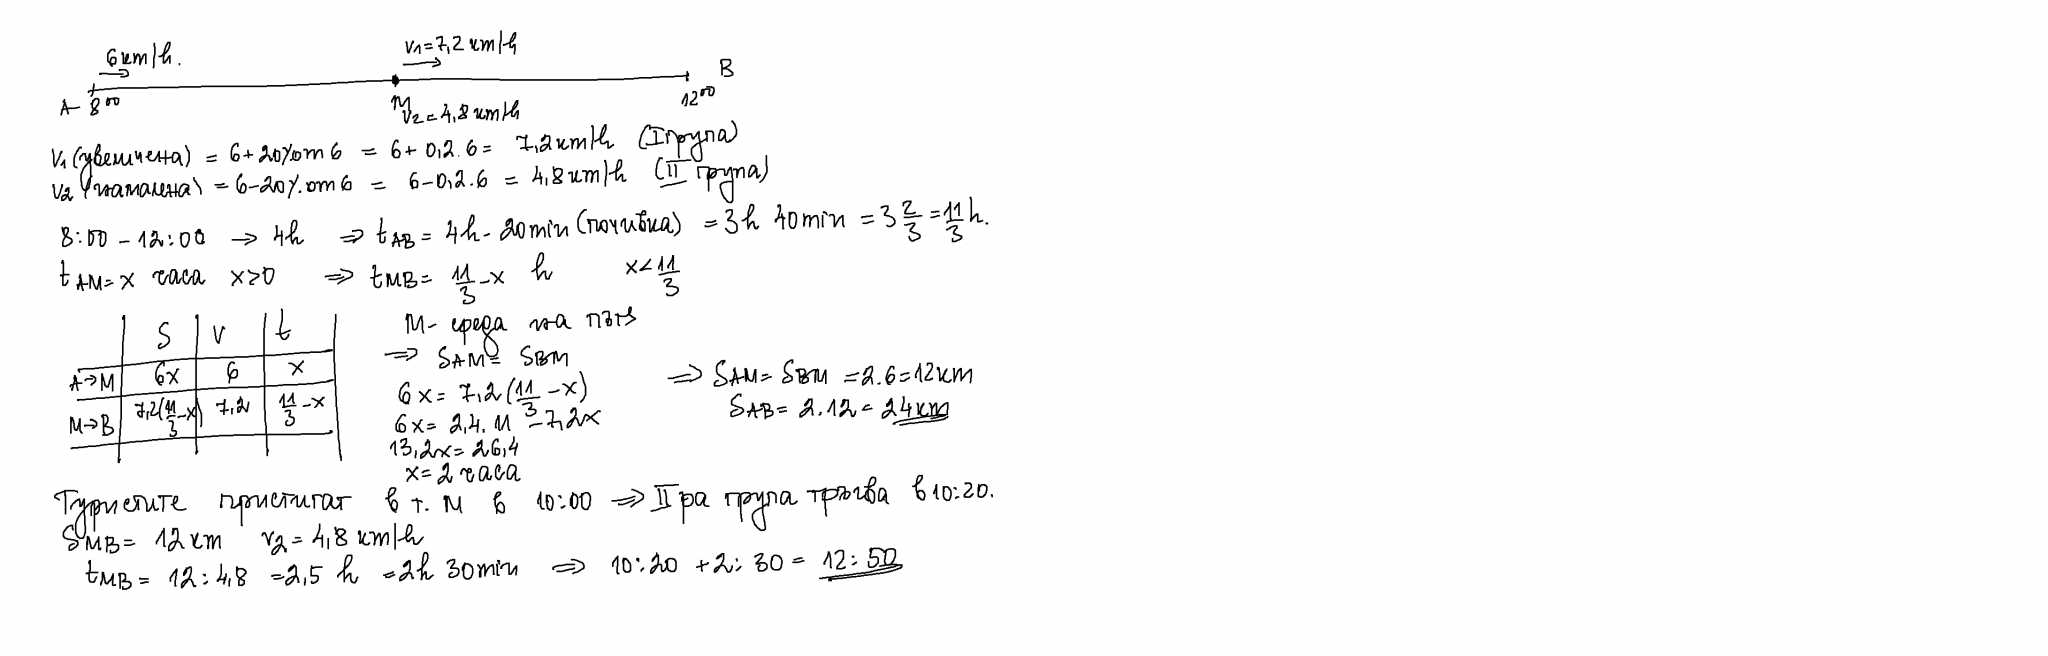 6 km/h.
V1=7,2 km/h
B
A 8⁰⁰
M
V2=4,8 km/h
12⁰⁰
V1 (увеличена) = 6+20% от 6 = 6+0,2.6 = 7,2 km/h (I група)
V2 (намалена) = 6-20% от 6 = 6-0,2.6 = 4,8 km/h (II група)
8:00 - 12:00 → 4h ⇒ tAB = 4h - 20min (почивка) = 3h 40min = 3 2/3 = 11/3 h.
tAM = x часа x>0 ⇒ tMB = 11/3 - x h x < 11/3
S V t
A→M 6x 6 x
M→B 7,2(11/3-x) 7,2 11/3-x
M- среда на пътя
⇒ SAM = SBM
6x = 7,2(11/3 - x)
6x = 2,4.11 - 7,2x
13,2x = 26,4
x = 2 часа
⇒ SAM = SBM = 2.6 = 12 km
SAB = 2.12 = 24 km
Туристите пристигат в т. M в 10:00 ⇒ II ра група тръгва в 10:20.
SMB = 12 km V2 = 4,8 km/h
tMB = 12:4,8 = 2,5 h = 2h 30min ⇒ 10:20 + 2:30 = 12:50